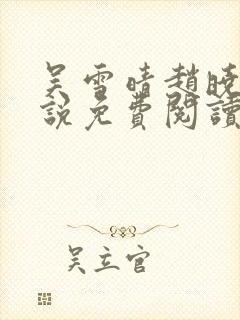 吴雪晴趙曉
說免費閱讀
吴立官